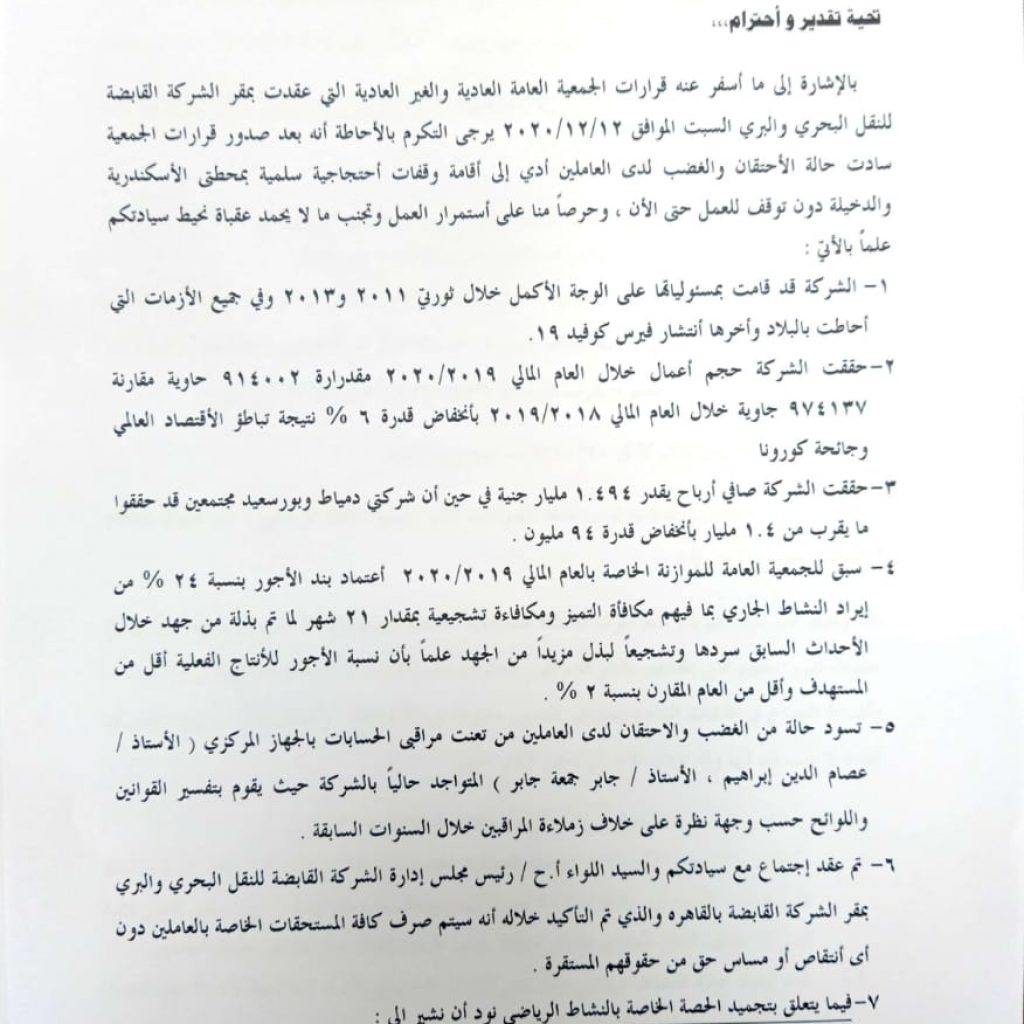 تحية تقدير و أحترام،،،
بالإشارة إلى ما أسفر عنه قرارات الجمعية العامة العادية والغير العادية التي عقدت بمقر الشركة القابضة
للنقل البحري والبري السبت الموافق ٢٠٢٠/١٢/١٢ يرجى التكرم بالأحاطة أنه بعد صدور قرارات الجمعية
سادت حالة الأحتقان والغضب لدى العاملين أدي إلى أقامة وقفات أحتجاجية سلمية بمحطتى الأسكندرية
والدخيلة دون توقف للعمل حتى الأن ، وحرصاً منا على أستمرار العمل وتجنب ما لا يحمد عقباة نحيط سيادتكم
علماً بالأتيّ :
١- الشركة قد قامت بمسئولياتها على الوجة الأكمل خلال ثورتيّ ٢٠١١ و٢٠١٣ وفي جميع الأزمات التي
أحاطت بالبلاد وأخرها أنتشار فيرس كوفيد ١٩.
٢-حققت الشركة حجم أعمال خلال العام المالي ٢٠٢٠/٢٠١٩ مقدرارة ٩١٤٠٠٢ حاوية مقارنة
٩٧٤١٣٧ جاوية خلال العام المالي ٢٠١٩/٢٠١٨ بأنخفاض قدرة ٦ % نتيجة تباطؤ الأقتصاد العالمي
وجائحة كورونا
٣-حققت الشركة صافي أرباح يقدر ١.٤٩٤ مليار جنية في حين أن شركتي دمياط وبورسعيد مجتمعين قد حققوا
ما يقرب من ١.٤ مليار بأنخفاض قدرة ٩٤ مليون .
٤- سبق للجمعية العامة للموازنة الخاصة بالعام المالي ٢٠٢٠/٢٠١٩ أعتماد بند الأجور بنسبة ٢٤ % من
إيراد النشاط الجاري بما فيهم مكافأة التميز ومكافاءة تشجيعية بمقدار ٢١ شهر لما تم بذلة من جهد خلال
الأحداث السابق سردها وتشجيعاً لبذل مزيداً من الجهد علماً بأن نسبة الأجور للأنتاج الفعلية أقل من
المستهدف وأقل من العام المقارن بنسبة ٢ % .
٥- تسود حالة من الغضب والاحتقان لدى العاملين من تعنت مراقبى الحسابات بالجهاز المركزي ( الأستاذ /
عصام الدين إبراهيم ، الأستاذ / جابر جمعة جابر ) المتواجد حالياً بالشركة حيث يقوم بتفسير القوانين
واللوائح حسب وجهة نظرة على خلاف زملاءة المراقبين خلال السنوات السابقة .
٦- تم عقد إجتماع مع سيادتكم والسيد اللواء أ.ح / رئيس مجلس إدارة الشركة القابضة للنقل البحري والبري
بمقر الشركة القابضة بالقاهره والذي تم التأكيد خلاله أنه سيتم صرف كافة المستحقات الخاصة بالعاملين دون
أى أنتقاص أو مساس حق من حقوقهم المستقرة .
٧-فيما يتعلق بتجميد الحصة الخاصة بالنشاط الرياضي نود أن نشير الى :